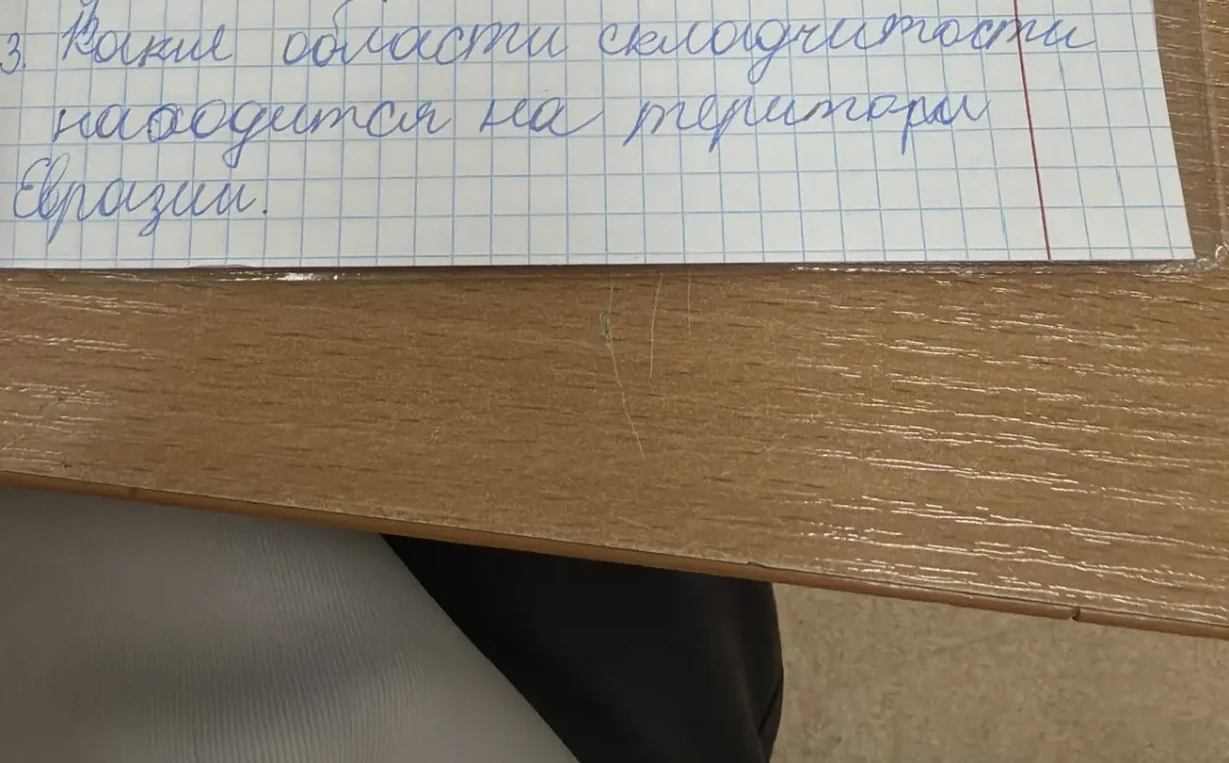 3. Какие области складчитости
находится на територи
Евразии.